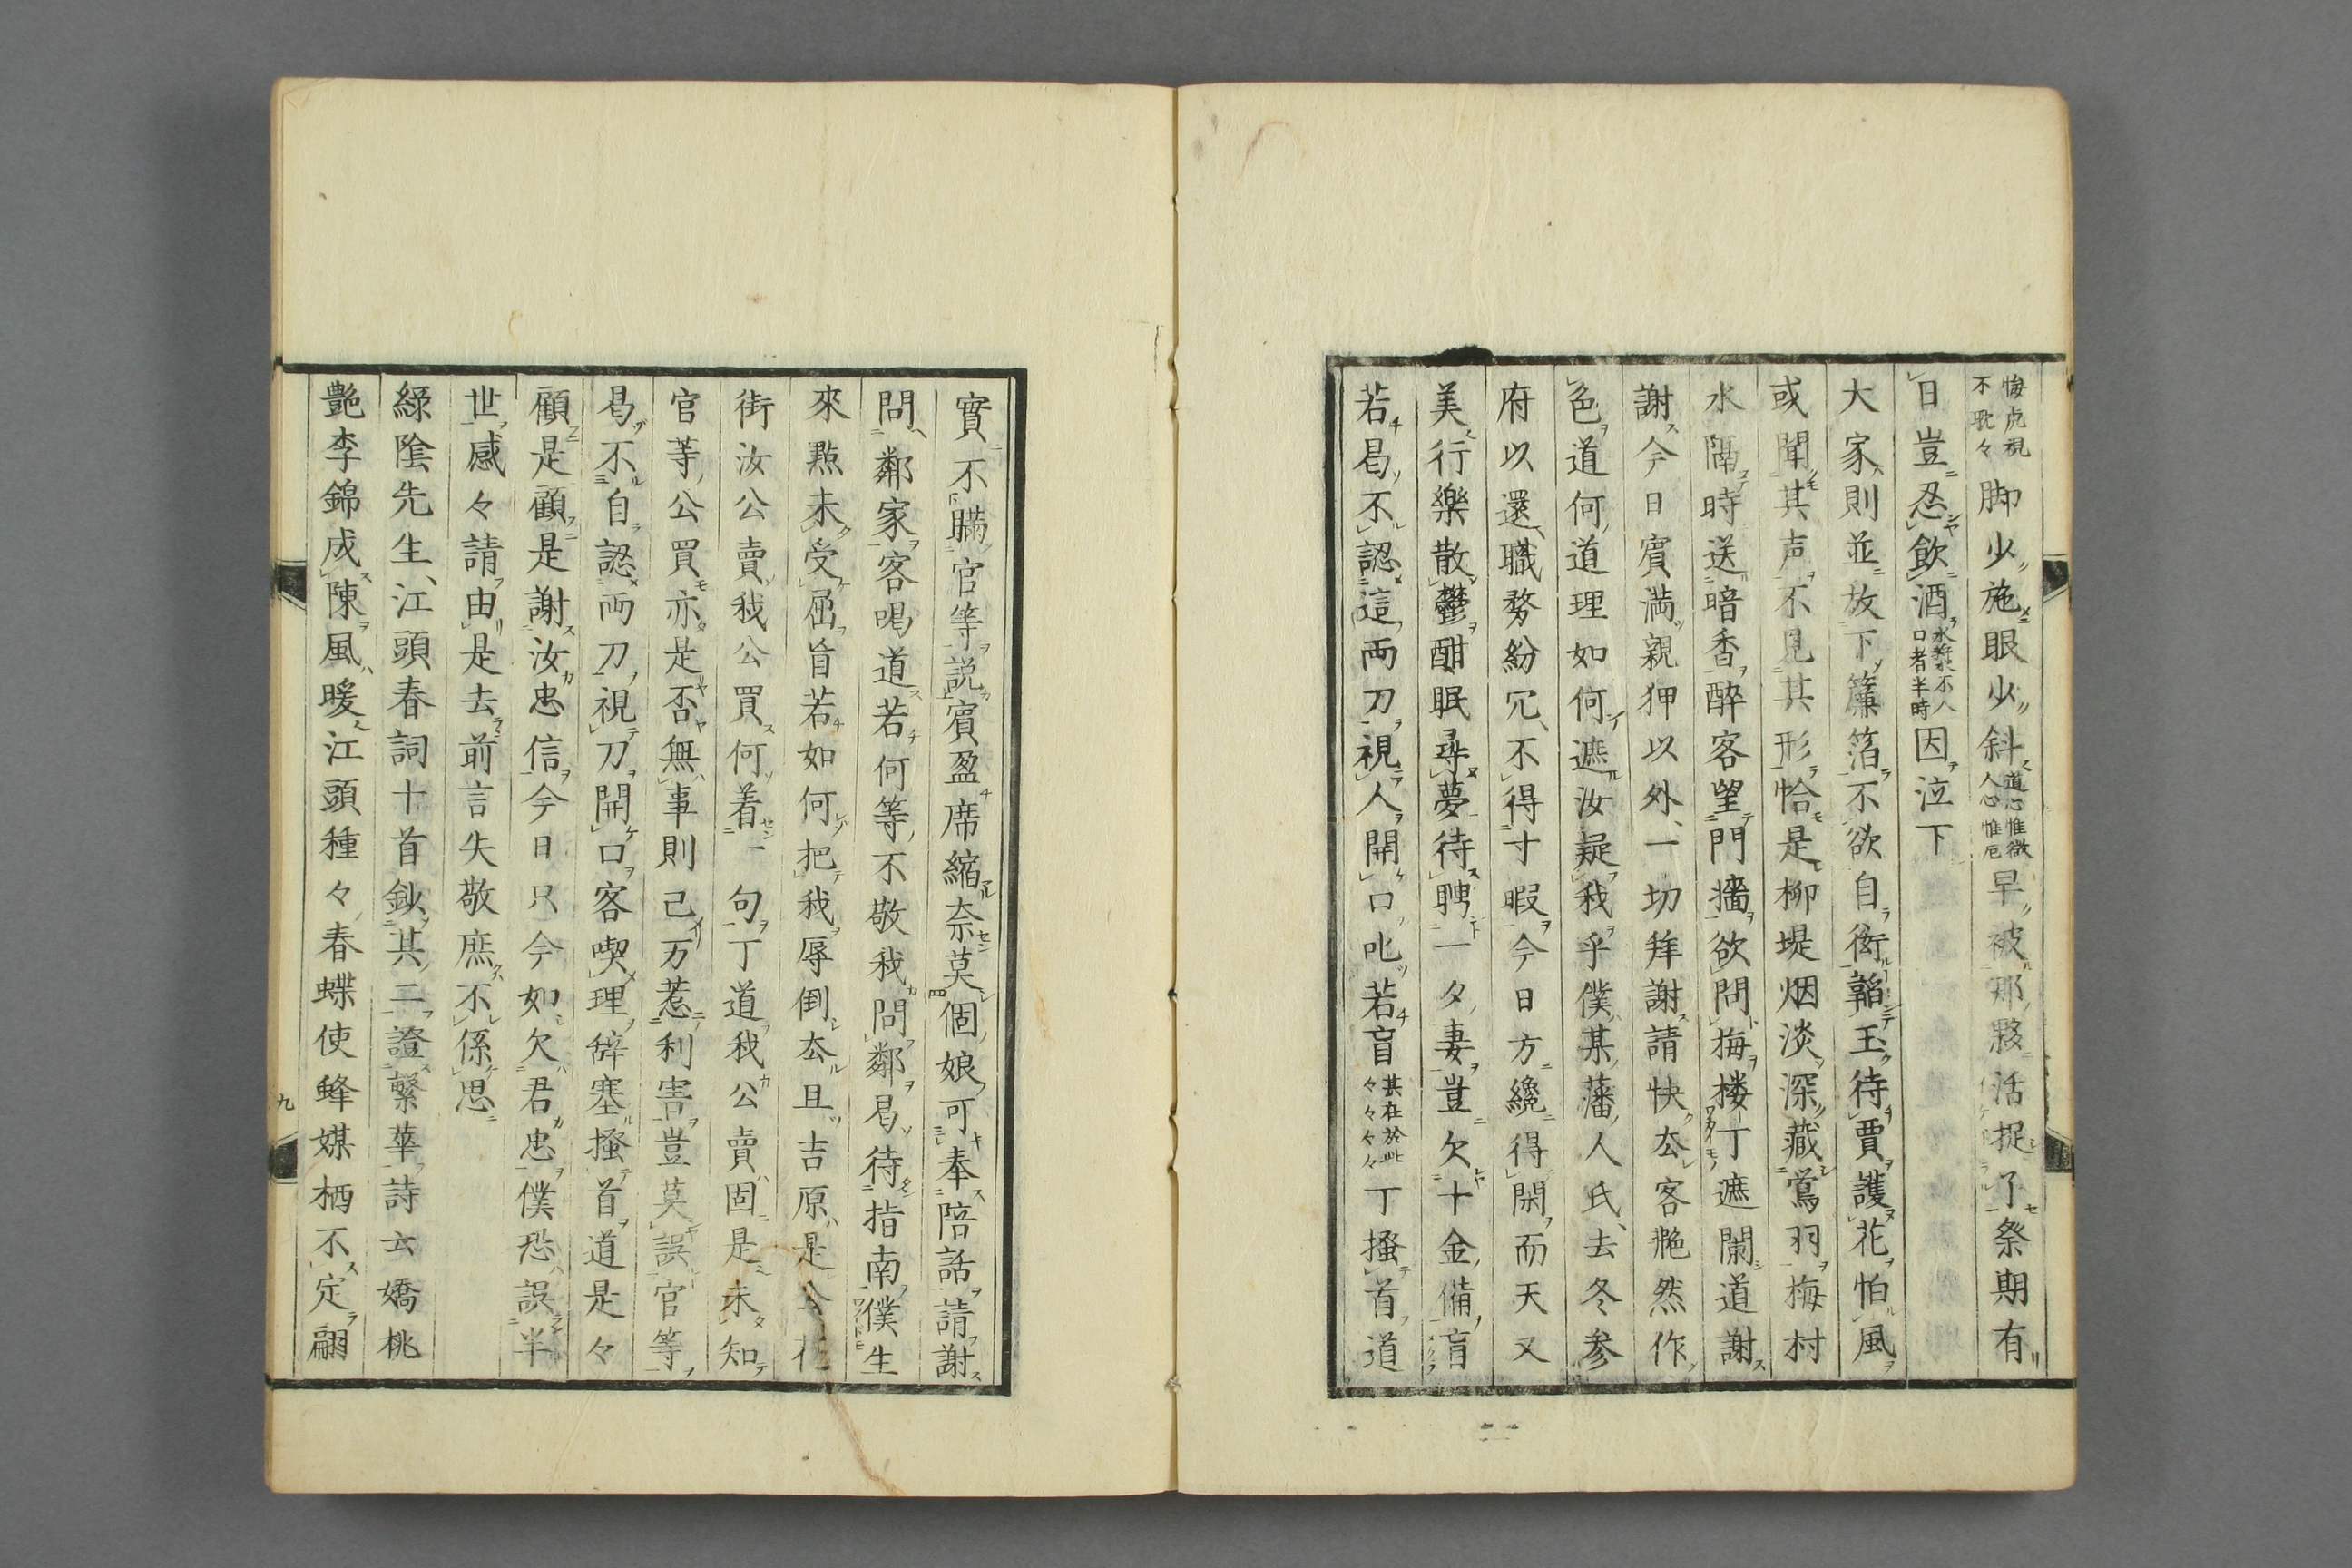 悔虎視不耽々脚少施眼少斜道心惟微人心惟危早被那夥活捉了祭期有
日豈忍飲酒水漿不入口者半時因泣下
大家則並放下簾箔不欲自衒韜玉待賈護花怕風
或聞其声不見其形恰是柳堤烟淡深藏鶯羽梅村
水隔時送暗香醉客望門墻欲問梅楼丁遮闌道謝
謝今日賓満親狎以外一切拜謝請快去客艴然作
色道何道理如何遮汝疑我乎僕某藩人氏去冬参
府以還職務紛冗不得寸暇今日方纔得閑而天又
美行樂散鬱酣眠尋夢待聘一夕妻豈欠十金備盲
若曷不認這両刀視人開口叱若盲其在於此々々々々丁掻首道
實不瞞官等説賓盈席縮奈莫個娘可奉陪話請謝
問鄰家客喝道若何等不敬我問鄰曷待指南僕生
來㸃未受屈旨若如何把我辱倒去且吉原是公花
街汝公賣我公買何着一句丁道我公賣固是未知
官等公買亦是否無事則已万惹利害豈莫誤官等
曷不自認両刀視刀開口客喫理辞塞掻首道是々
顧是顧是謝汝忠信今日只今如欠君忠僕恐誤半
世感々請由是去前言失敬庶不係思
緑陰先生江頭春詞十首鈔其二證繁華詩云嬌桃
艶李錦成陳風暖江頭種々春蝶使蜂媒栖不定翩
九